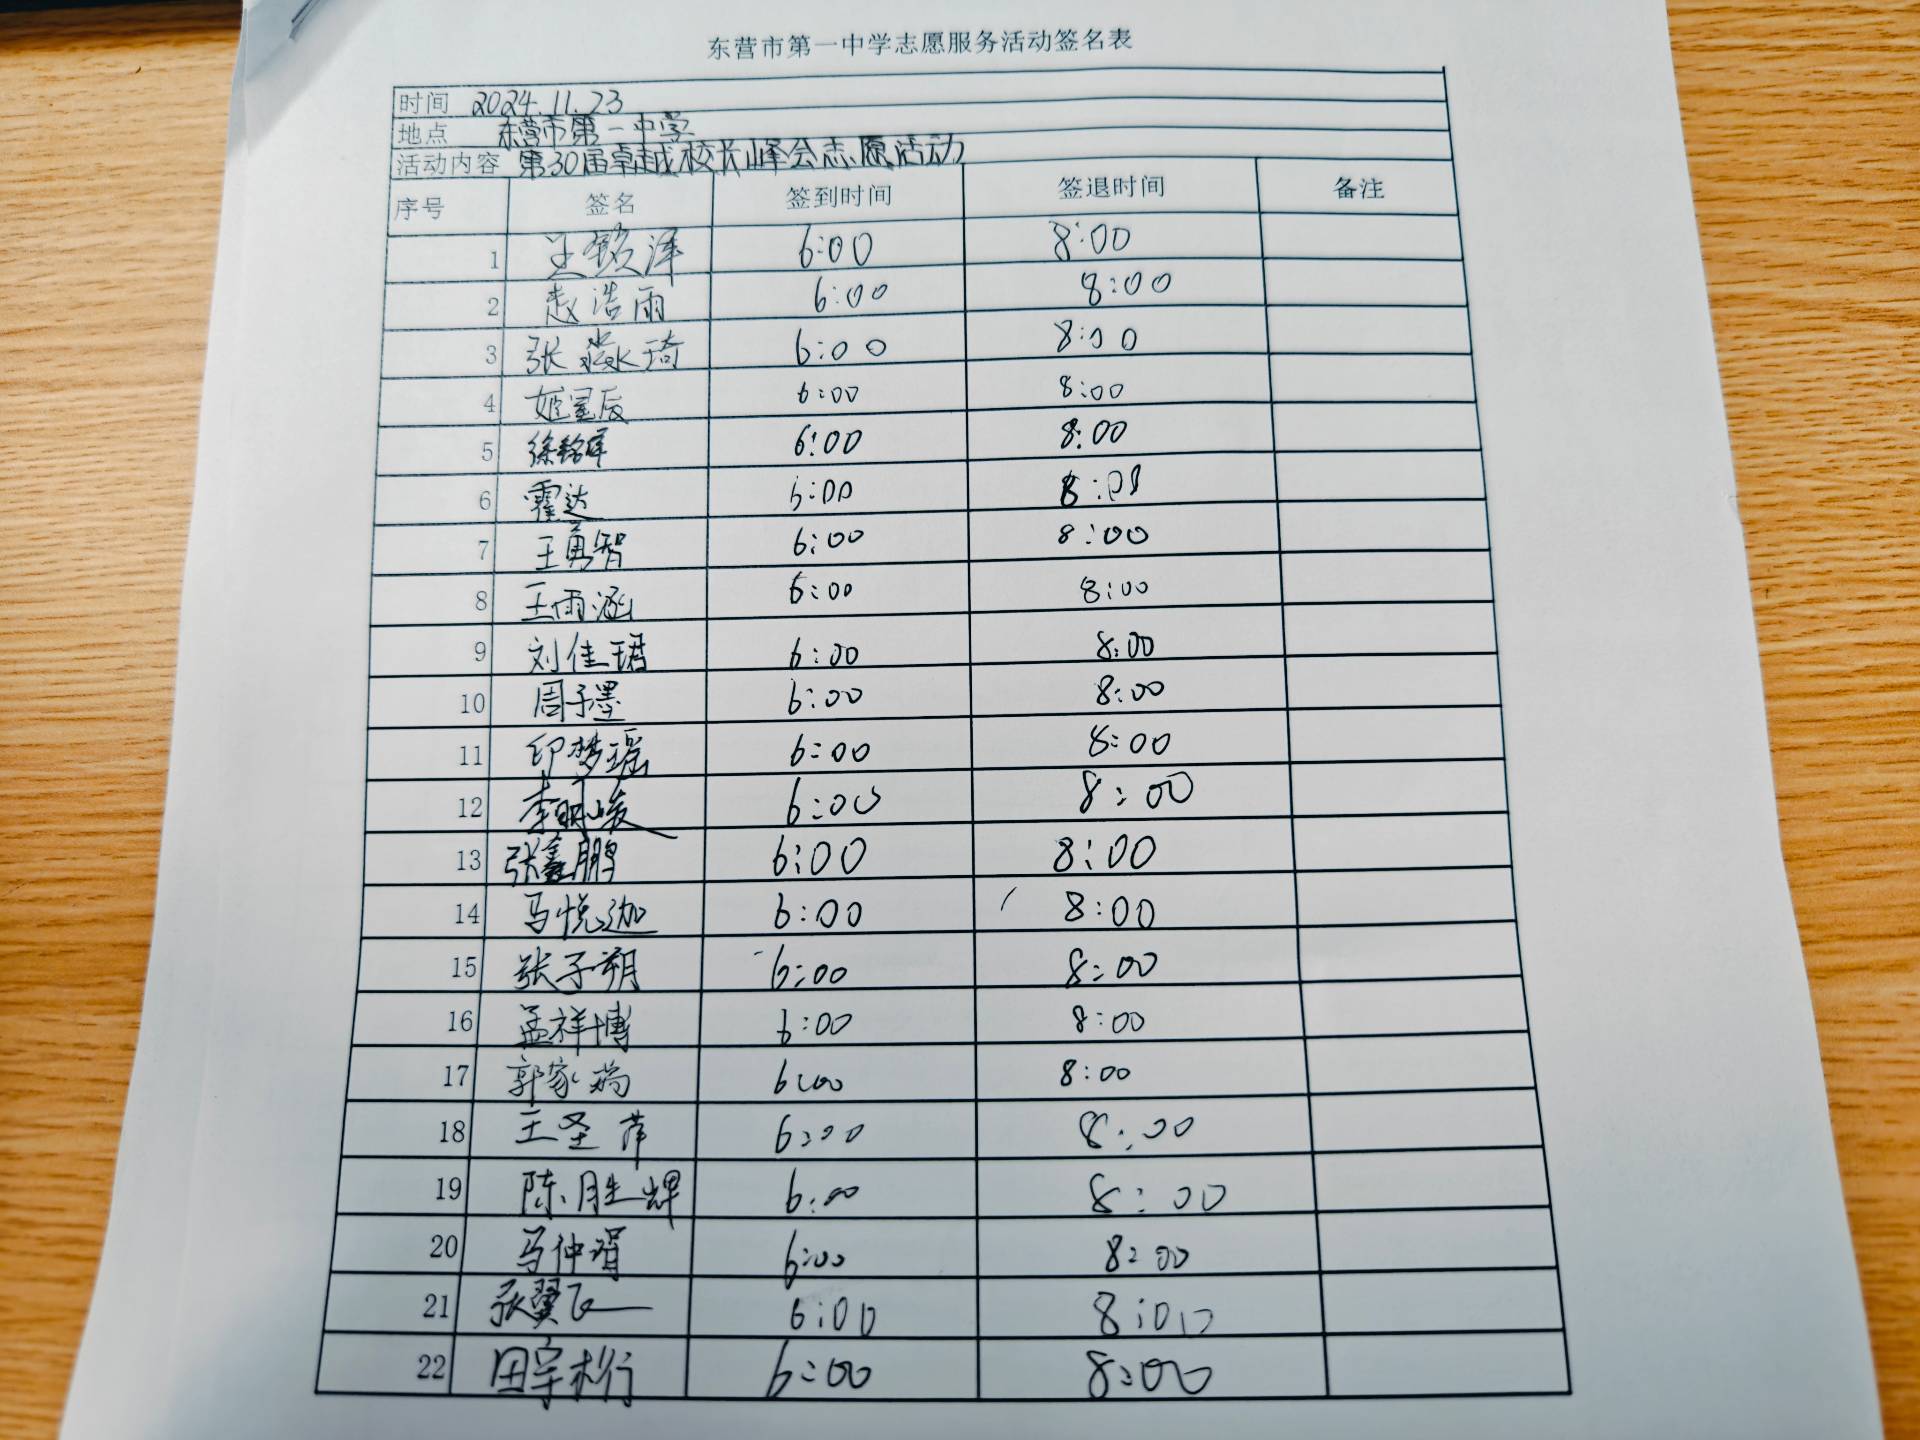 东营市第一中学志愿服务活动签名表
时间 2024.11.23
地点 东营市第一中学
活动内容 第30届卓越校长峰会志愿活动
序号 签名 签到时间 签退时间 备注
1 王铭泽 6:00 8:00
2 赵浩雨 6:00 8:00
3 张淼琦 6:00 8:00
4 姬星辰 6:00 8:00
5 徐铭泽 6:00 8:00
6 霍达 6:00 8:00
7 王勇智 6:00 8:00
8 王雨涵 6:00 8:00
9 刘佳珺 6:00 8:00
10 周子墨 6:00 8:00
11 印梦瑶 6:00 8:00
12 李明峻 6:00 8:00
13 张鑫鹏 6:00 8:00
14 马悦迦 6:00 8:00
15 张子朔 6:00 8:00
16 孟祥博 6:00 8:00
17 郭家瑞 6:00 8:00
18 王圣 6:00 8:00
19 陈胜辉 6:00 8:00
20 马仲琩 6:00 8:00
21 张翼飞 6:00 8:00
22 田宇桁 6:00 8:00